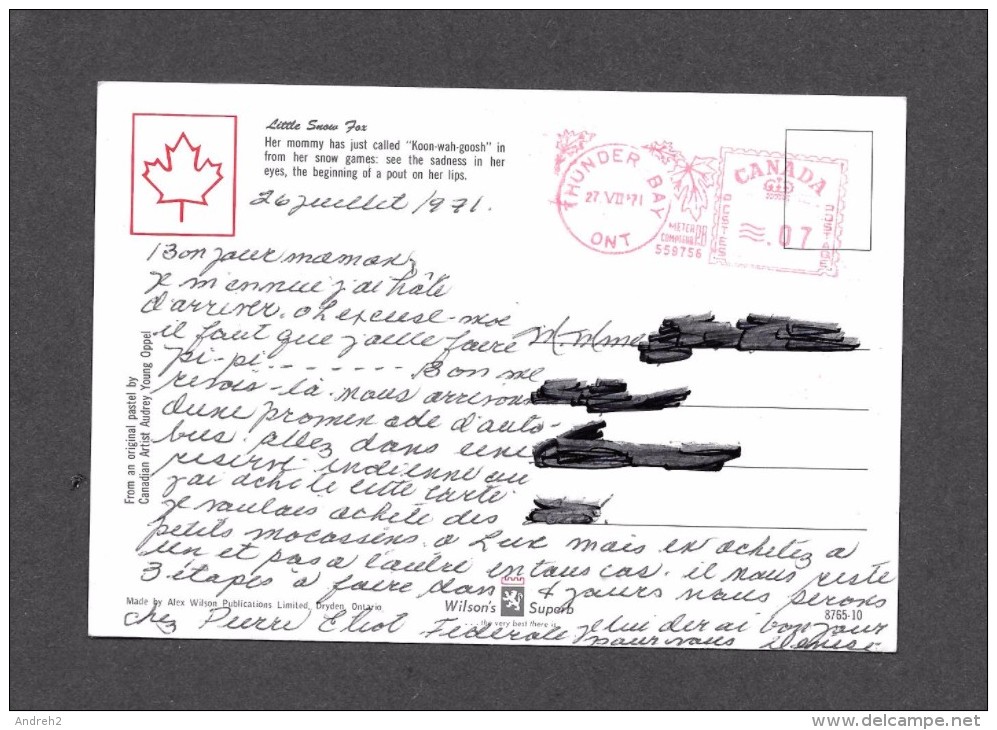 Little Snow Fox
Her mommy has just called "Koon-wah-goosh" in
from her snow games: see the sadness in her
eyes, the beginning of a pout on her lips.
26 juillet 1971.
THUNDER BAY
27 VII '71
ONT
METER
COMPTEUR
559756
CANADA
POSTES
POSTAGE
.07
Bonjour maman,
Je m'ennui j'ai hâte
d'arriver. oh excuse-moi
il faut que j'aille faire
pi-pi........ Bon me
revois-là. nous arrivons
dune promenade d'auto-
bus allez dans une
reserve indienne ou
j'ai acheté cette carte
je voulais acheté des
petits mocassins a Luc mais en achetez a
un et pas a l'autre en tous cas. il nous reste
3 étapes à faire dans 4 jours nous serons
chez Pierre Eliot Féderale je lui dirai bonjour
pour vous Denise
M. Mme
From an original pastel by
Canadian Artist Audrey Young Oppel
Made by Alex Wilson Publications Limited, Dryden, Ontario
Wilson's Superb
...the very best there is
8765-10
Andreh2
www.delcampe.net